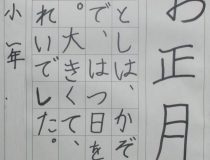 お正月
としは、かぞ
で、はつ日を
。大きくて、
れいでした。
小一年